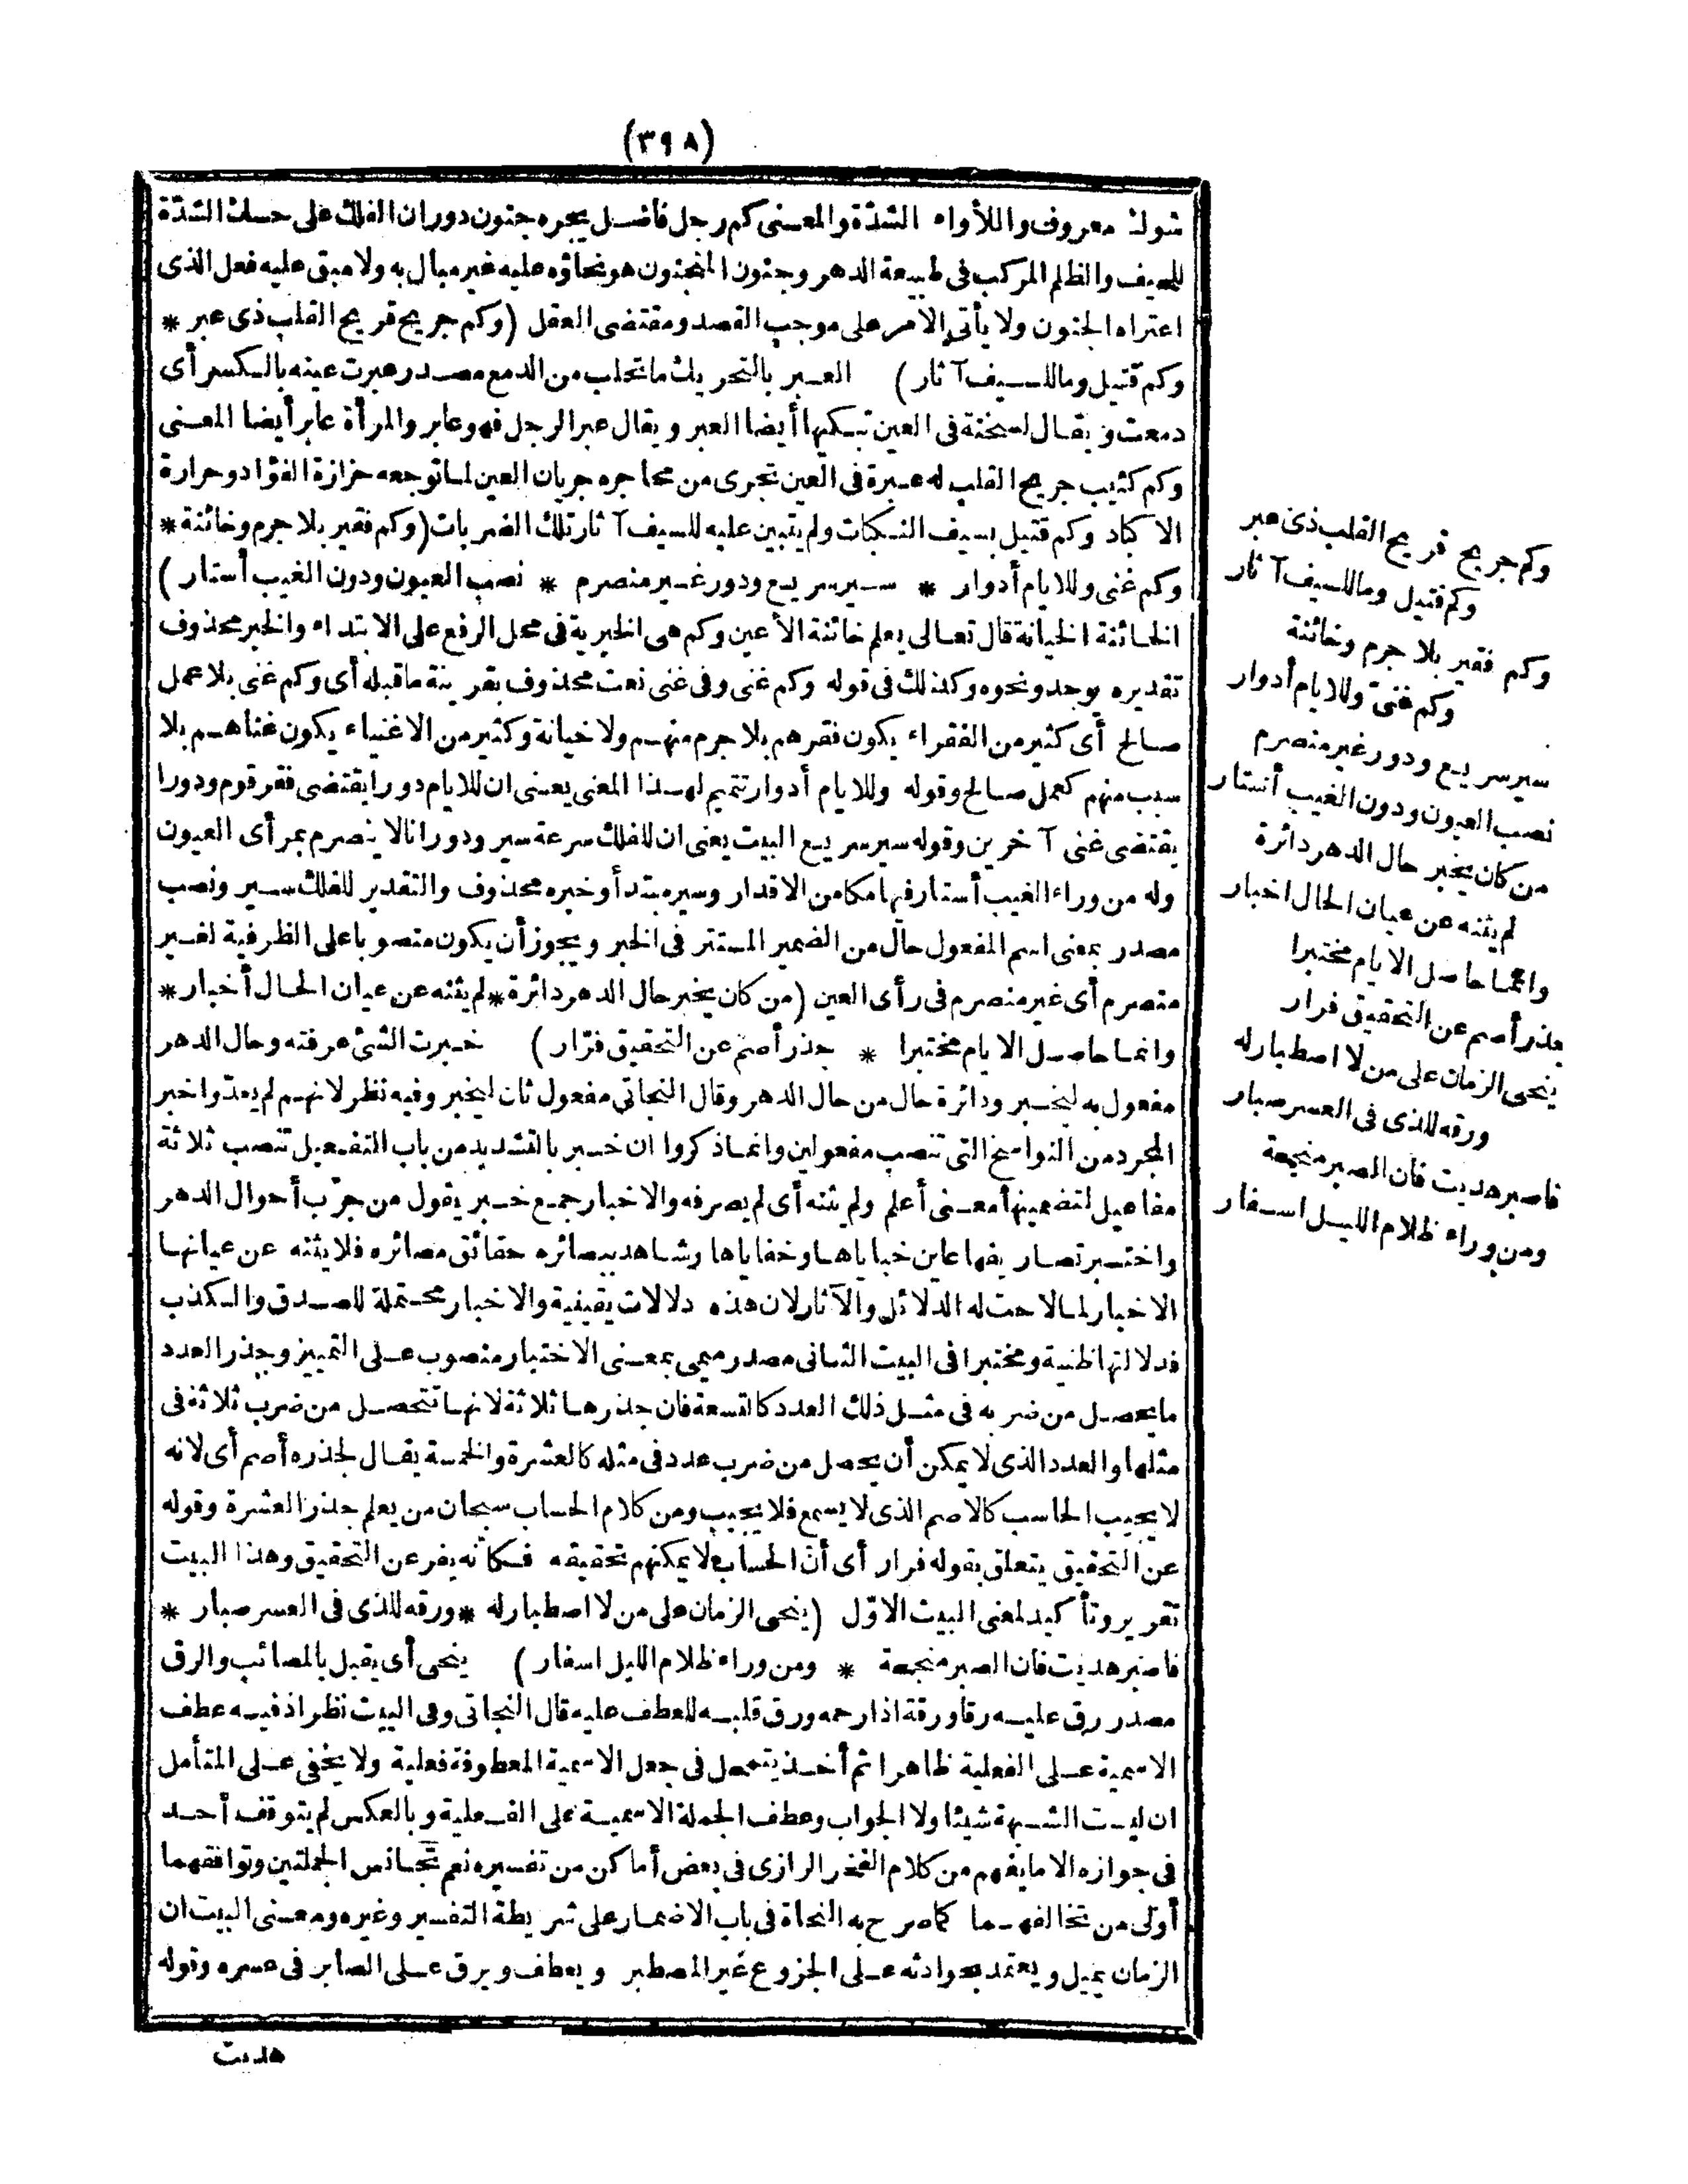 (٣٩٨)
شوك معروف واللأواء الشدّة والمعنى كم رجل فاضل يجره جنون دوران الفلك على حسك الشدّة
للحيف والظلم المركب فى طبيعة الدهر وجنون المنجنون هو نحاؤه عليه غير مبال به ولا مبق عليه فعل الذى
اعتراه الجنون ولا يأتى الأمر على موجب القصد ومقتضى العقل (وكم جريح قريح القلب ذى عبر *
وكم قتيل وما للسيف آثار) العبر بالتحريك ما تحلب من الدمع مصدر عبرت عينه بالكسر أى
دمعت ويقال لسخنة فى العين تبكيها أيضا العبر ويقال عبر الرجل فهو عابر والمرأة عابر أيضا المعنى
وكم كئيب جريح القلب له عبرة فى العين تجرى من محاجره جريان العين لما توجعه حزازة الفؤاد وحرارة
الاكباد وكم قتيل بسيف النكبات ولم يتبين عليه للسيف آثار تلك الضربات (وكم فقير بلا جرم وخائنة *
وكم غنى وللايام أدوار * سير سريع ودور غير منصرم * نصب العيون ودون الغيب أستار)
الخائنة الخيانة قال تعالى يعلم خائنة الأعين وكم هى الخبرية فى محل الرفع على الابتداء والخبر محذوف
تقديره يوجد ونحوه وكذلك فى قوله وكم غنى وفى غنى نعت محذوف بقرينة ما قبله أى وكم غنى بلا عمل
صالح أى كثير من الفقراء يكون فقرهم بلا جرم منهم ولا خيانة وكثير من الاغنياء يكون غناهم بلا
سبب منهم كعمل صالح وقوله وللايام أدوار تتميم لهذا المعنى يعنى ان للايام دورا يقتضى فقر قوم ودورا
يقتضى غنى آخرين وقوله سير سريع البيت يعنى ان للفلك سرعة سير ودورانا لا ينصرم بمرأى العيون
وله من وراء الغيب أستار فيها مكامن الاقدار وسير مبتدأ وخبره محذوف والتقدير للفلك سير ونصب
مصدر بمعنى اسم المفعول حال من الضمير المستتر فى الخبر ويجوز أن يكون منصوبا على الظرفية لغير
منصرم أى غير منصرم فى رأى العين (من كان يخبر حال الدهر دائرة * لم يثنه عن عيان الحال أخبار *
وانما حاصل الايام مختبرا * جذر أصم عن التحقيق فرّار) خبرت الشئ عرفته وحال الدهر
مفعول به ليخبر ودائرة حال من حال الدهر وقال النجاتى مفعول ثان ليخبر وفيه نظر لانهم لم يعدّوا خبر
المجرد من النواسخ التى تنصب مفعولين وانما ذكروا ان خبر بالتشديد من باب التفعيل تنصب ثلاثة
مفاعيل لتضمينها معنى أعلم ولم يثنه أى لم يصرفه والاخبار جمع خبر يقول من جرّب أحوال الدهر
واختبر تصاريفها عاين خباياها وخفاياها وشاهد ببصائره حقائق مصائره فلا يثنه عن عيانها
الاخبار لما لاحت له الدلائل والآثار لان هذه دلالات يقينية والاخبار محتملة للصدق والكذب
فدلالتها ظنية ومختبرا فى البيت الثانى مصدر ميمى بمعنى الاختبار منصوب على التمييز وجذر العدد
ما يحصل من ضربه فى مثل ذلك العدد كالتسعة فان جذرها ثلاثة لانها تتحصل من ضرب ثلاثة فى
مثلها والعدد الذى لا يمكن أن يحصل من ضرب عدد فى مثله كالعشرة والخمسة يقال لجذره أصم أى لانه
لا يجيب الحاسب كالاصم الذى لا يسمع فلا يجيب ومن كلام الحساب سبحان من يعلم جذر العشرة وقوله
عن التحقيق يتعلق بقوله فرار أى أن الحساب لا يمكنهم تحقيقه فكأنه يفر عن التحقيق وهذا البيت
تقرير وتأكيد لمعنى البيت الاوّل (ينحى الزمان على من لا اصطبار له * ورقه للذى فى العسر صبار *
فاصبر هديت فان الصبر منجحة * ومن وراء ظلام الليل اسفار) ينحى أى يقبل بالمصائب والرق
مصدر رق عليه رقا ورقة اذا رحمه ورق قلبه للعطف عليه قال النجاتى وفى البيت نظر اذ فيه عطف
الاسمية على الفعلية ظاهرا ثم أخذ يتمحل فى جعل الاسمية المعطوفة فعلية ولا يخفى على المتأمل
ان ليست الشبهة شيئا ولا الجواب وعطف الجملة الاسمية على الفعلية وبالعكس لم يتوقف أحد
فى جوازه الا ما يفهم من كلام الفخر الرازى فى بعض أماكن من تفسيره نعم تجانس الجملتين وتوافقهما
أولى من تخالفهما كما صرح به النحاة فى باب الاضمار على شريطة التفسير وغيره ومعنى البيت ان
الزمان يميل ويعتمد بحوادثه على الجزوع غير المصطبر ويعطف ويرق على الصابر فى عسره وقوله
هديت
وكم جريح قريح القلب ذى عبر
وكم قتيل وما للسيف آثار
وكم فقير بلا جرم وخائنة
وكم غنىّ وللايام أدوار
سير سريع ودور غير منصرم
نصب العيون ودون الغيب أستار
من كان يخبر حال الدهر دائرة
لم يثنه عن عيان الحال اخبار
وانما حاصل الايام مختبرا
جذر أصم عن التحقيق فرار
ينحى الزمان على من لا اصطبار له
ورقه للذى فى العسر صبار
فاصبر هديت فان الصبر منجحة
ومن وراء ظلام الليل اسفار